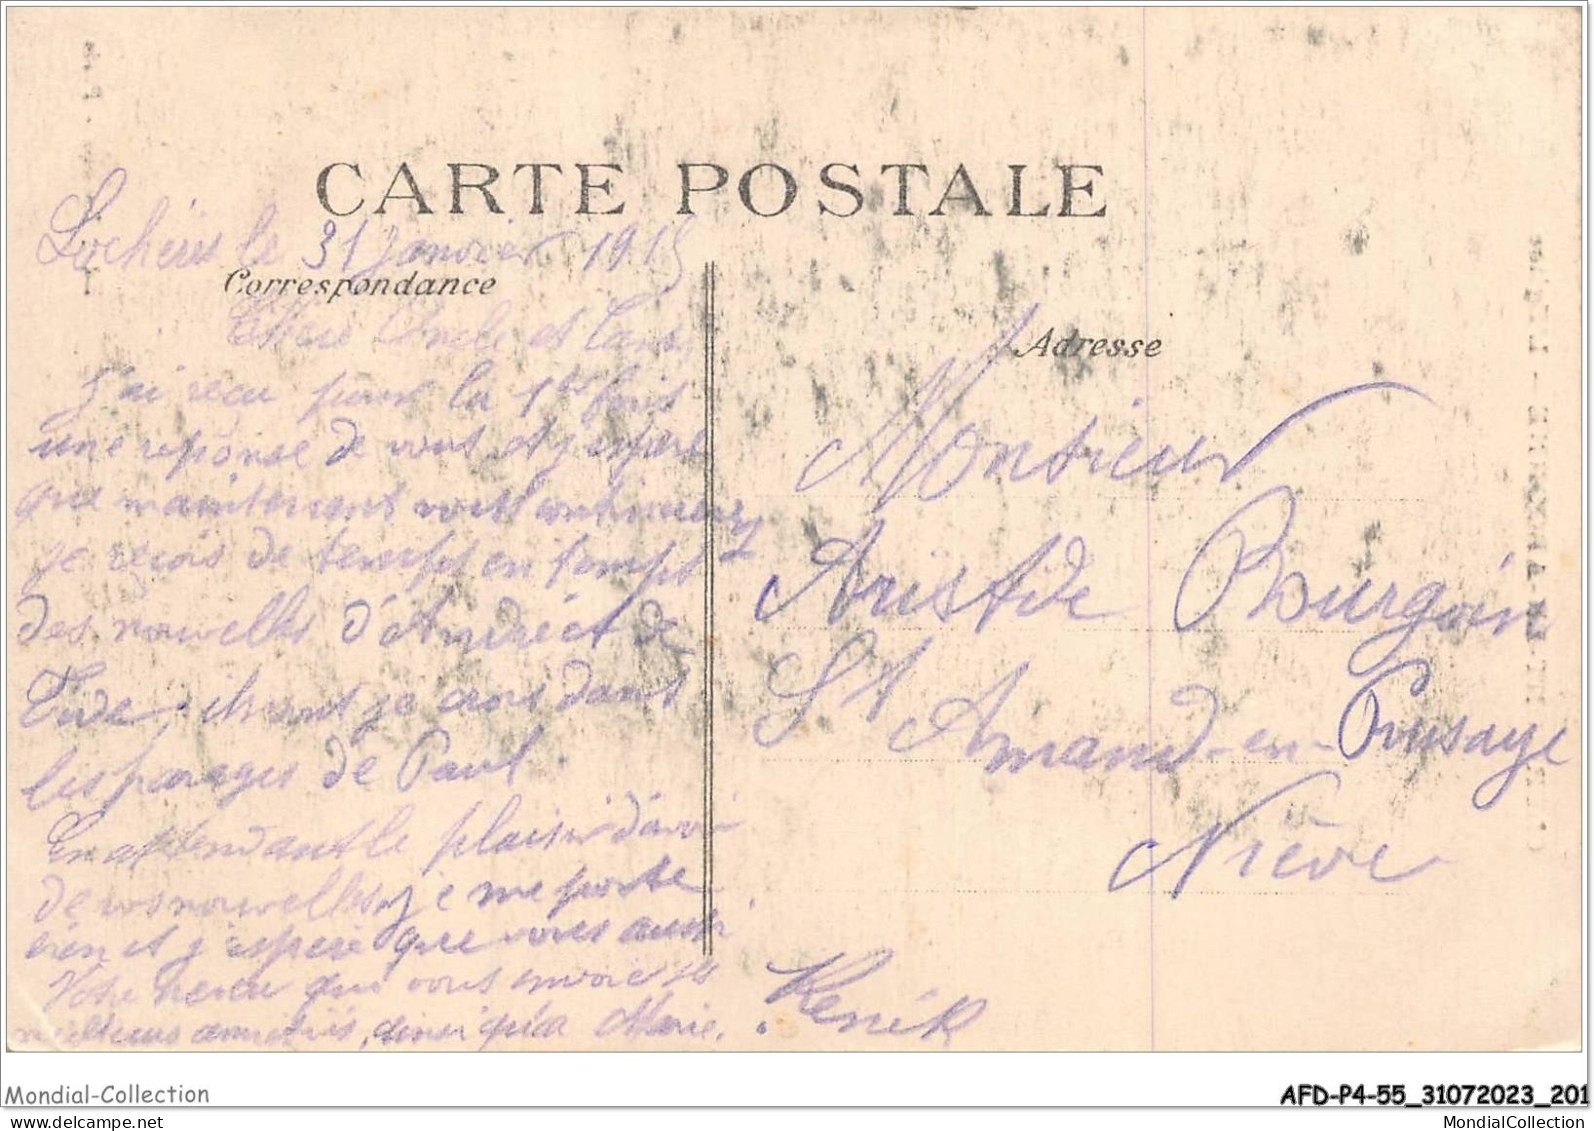 CARTE POSTALE
Lochères le 31 janvier 1915
Correspondance
Chers Oncle et Tante
J'ai reçu pour la 1ère fois
une réponse de vous et j'espère
que maintenant vous continuerez
je reçois de temps en temps
des nouvelles d'André et de
ils sont je crois dans
les parages de Paul.
En attendant le plaisir d'avoir
de vos nouvelles je me porte
bien et j'espère que vous aussi
Votre neveu qui vous envoie ses
meilleurs amitiés, ainsi qu'à Marie.
Adresse
Monsieur
Aristide Bourgoin
St Amand-en-Puisaye
Nièvre
Mondial-Collection
AFD-P4-55_31072023_201
MondialCollection